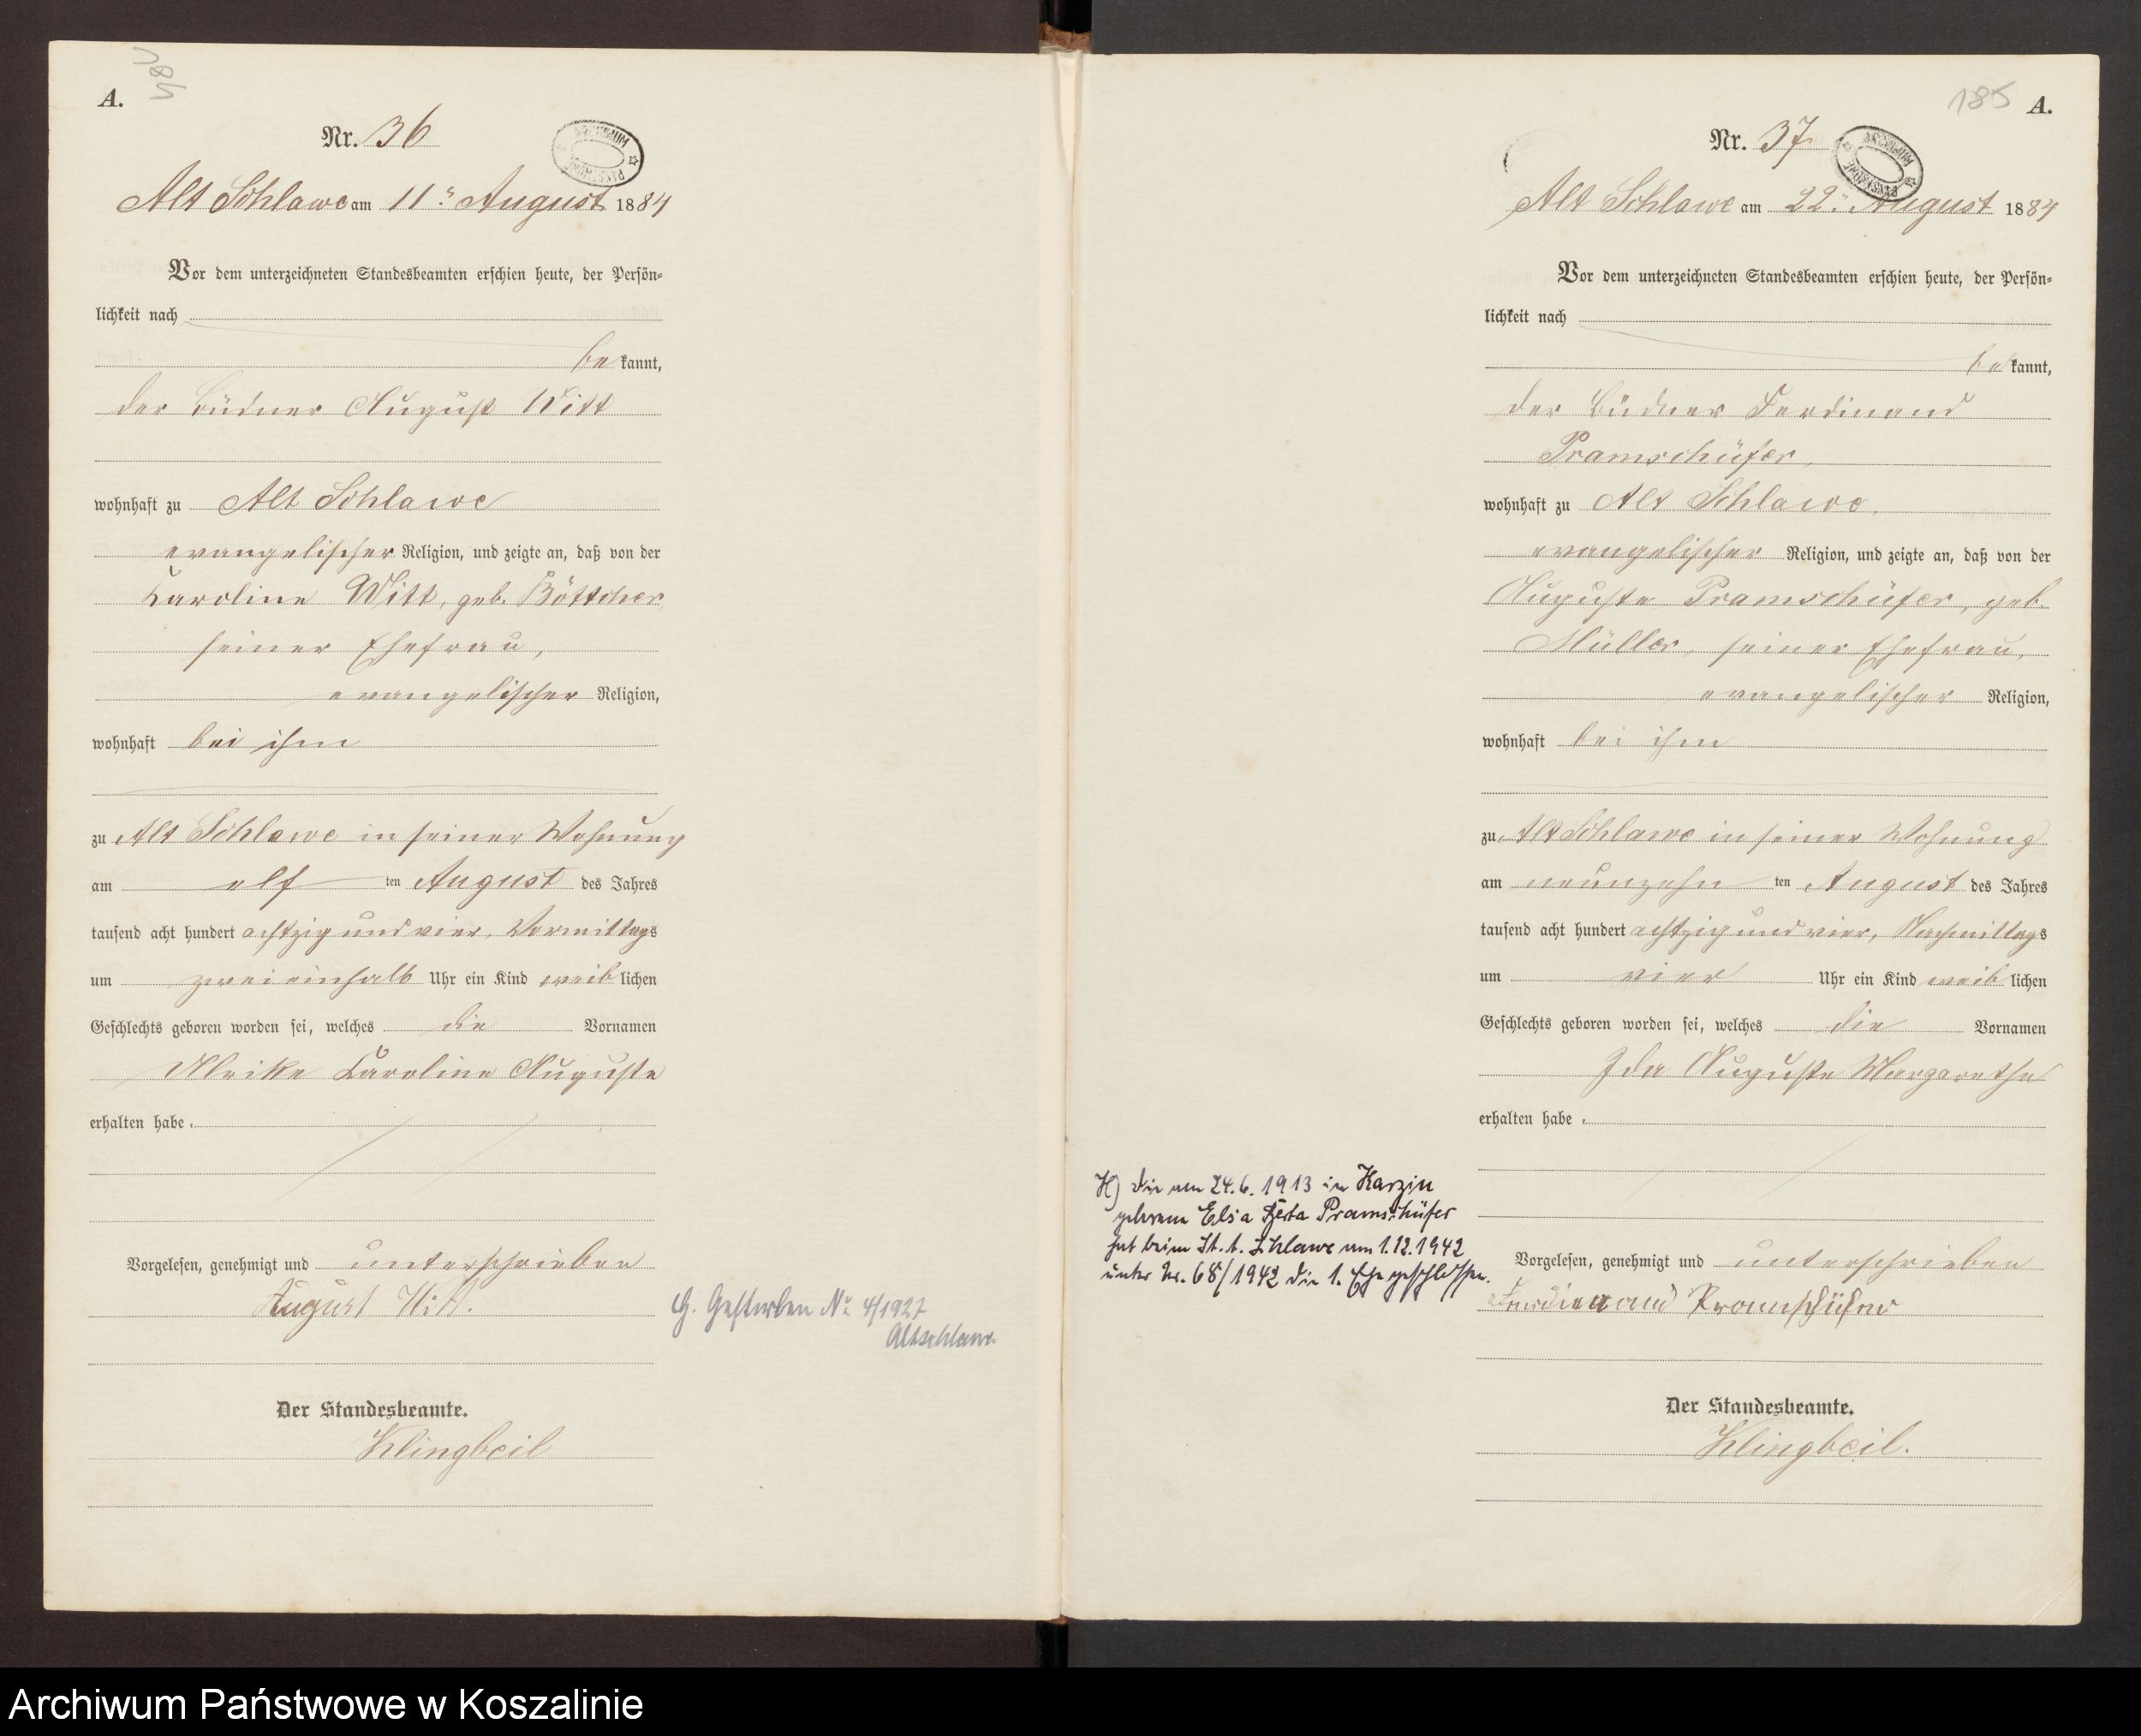 A.
Nr. 36
ARCHIWUM PAŃSTWOWE
Alt Schlawe am 11ten August 1884
Vor dem unterzeichneten Standesbeamten erschien heute, der Persön-
lichkeit nach
bekannt,
der Büdner August Witt
wohnhaft zu Alt Schlawe
evangelischer Religion, und zeigte an, daß von der
Karoline Witt, geb. Böttcher,
seiner Ehefrau,
evangelischer Religion,
wohnhaft bei ihm
zu Alt Schlawe in seiner Wohnung
am elf ten August des Jahres
tausend acht hundert achtzig und vier, Vormittags
um zweieinhalb Uhr ein Kind weiblichen
Geschlechts geboren worden sei, welches die Vornamen
Karoline Auguste
erhalten habe.
Vorgelesen, genehmigt und unterschrieben
August Witt.
G. Gestorben No 4/1927
Altschlawe
Der Standesbeamte.
Klingbeil
185
A.
Nr. 37
ARCHIWUM PAŃSTWOWE
Alt Schlawe am 22ten August 1884
Vor dem unterzeichneten Standesbeamten erschien heute, der Persön-
lichkeit nach
bekannt,
der Büdner Ferdinand
Pramschüfer,
wohnhaft zu Alt Schlawe,
evangelischer Religion, und zeigte an, daß von der
Auguste Pramschüfer, geb.
Müller, seiner Ehefrau,
evangelischer Religion,
wohnhaft bei ihm
zu Alt Schlawe in seiner Wohnung
am neunzehn ten August des Jahres
tausend acht hundert achtzig und vier, Nachmittags
um vier Uhr ein Kind weiblichen
Geschlechts geboren worden sei, welches die Vornamen
Ida Auguste Margarethe
erhalten habe.
H) Die am 24.6.1913 in Karzin
geborene Elsa Herta Pramschüfer
hat beim St. A. Schlawe am 1.12.1942
unter Nr. 68/1942 die 1. Ehe geschlossen.
Vorgelesen, genehmigt und unterschrieben
Ferdinand Pramschüfer
Der Standesbeamte.
Klingbeil.
Archiwum Państwowe w Koszalinie